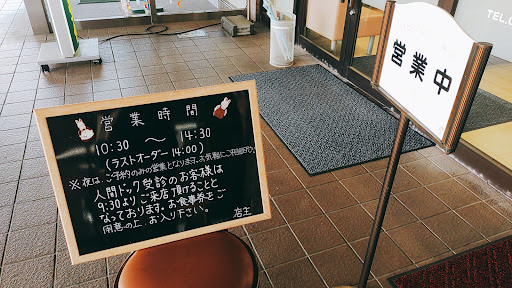 営業時間
10:30 ～ 14:30
(ラストオーダー 14:00)
※夜は、ご予約のみの営業となります。お気軽にご相談下さい
人間ドック受診のお客様は
9:30よりご来店頂けることと
なっております。お食事券をご
用意の上、お入り下さい。
店主
営業中
TEL.0